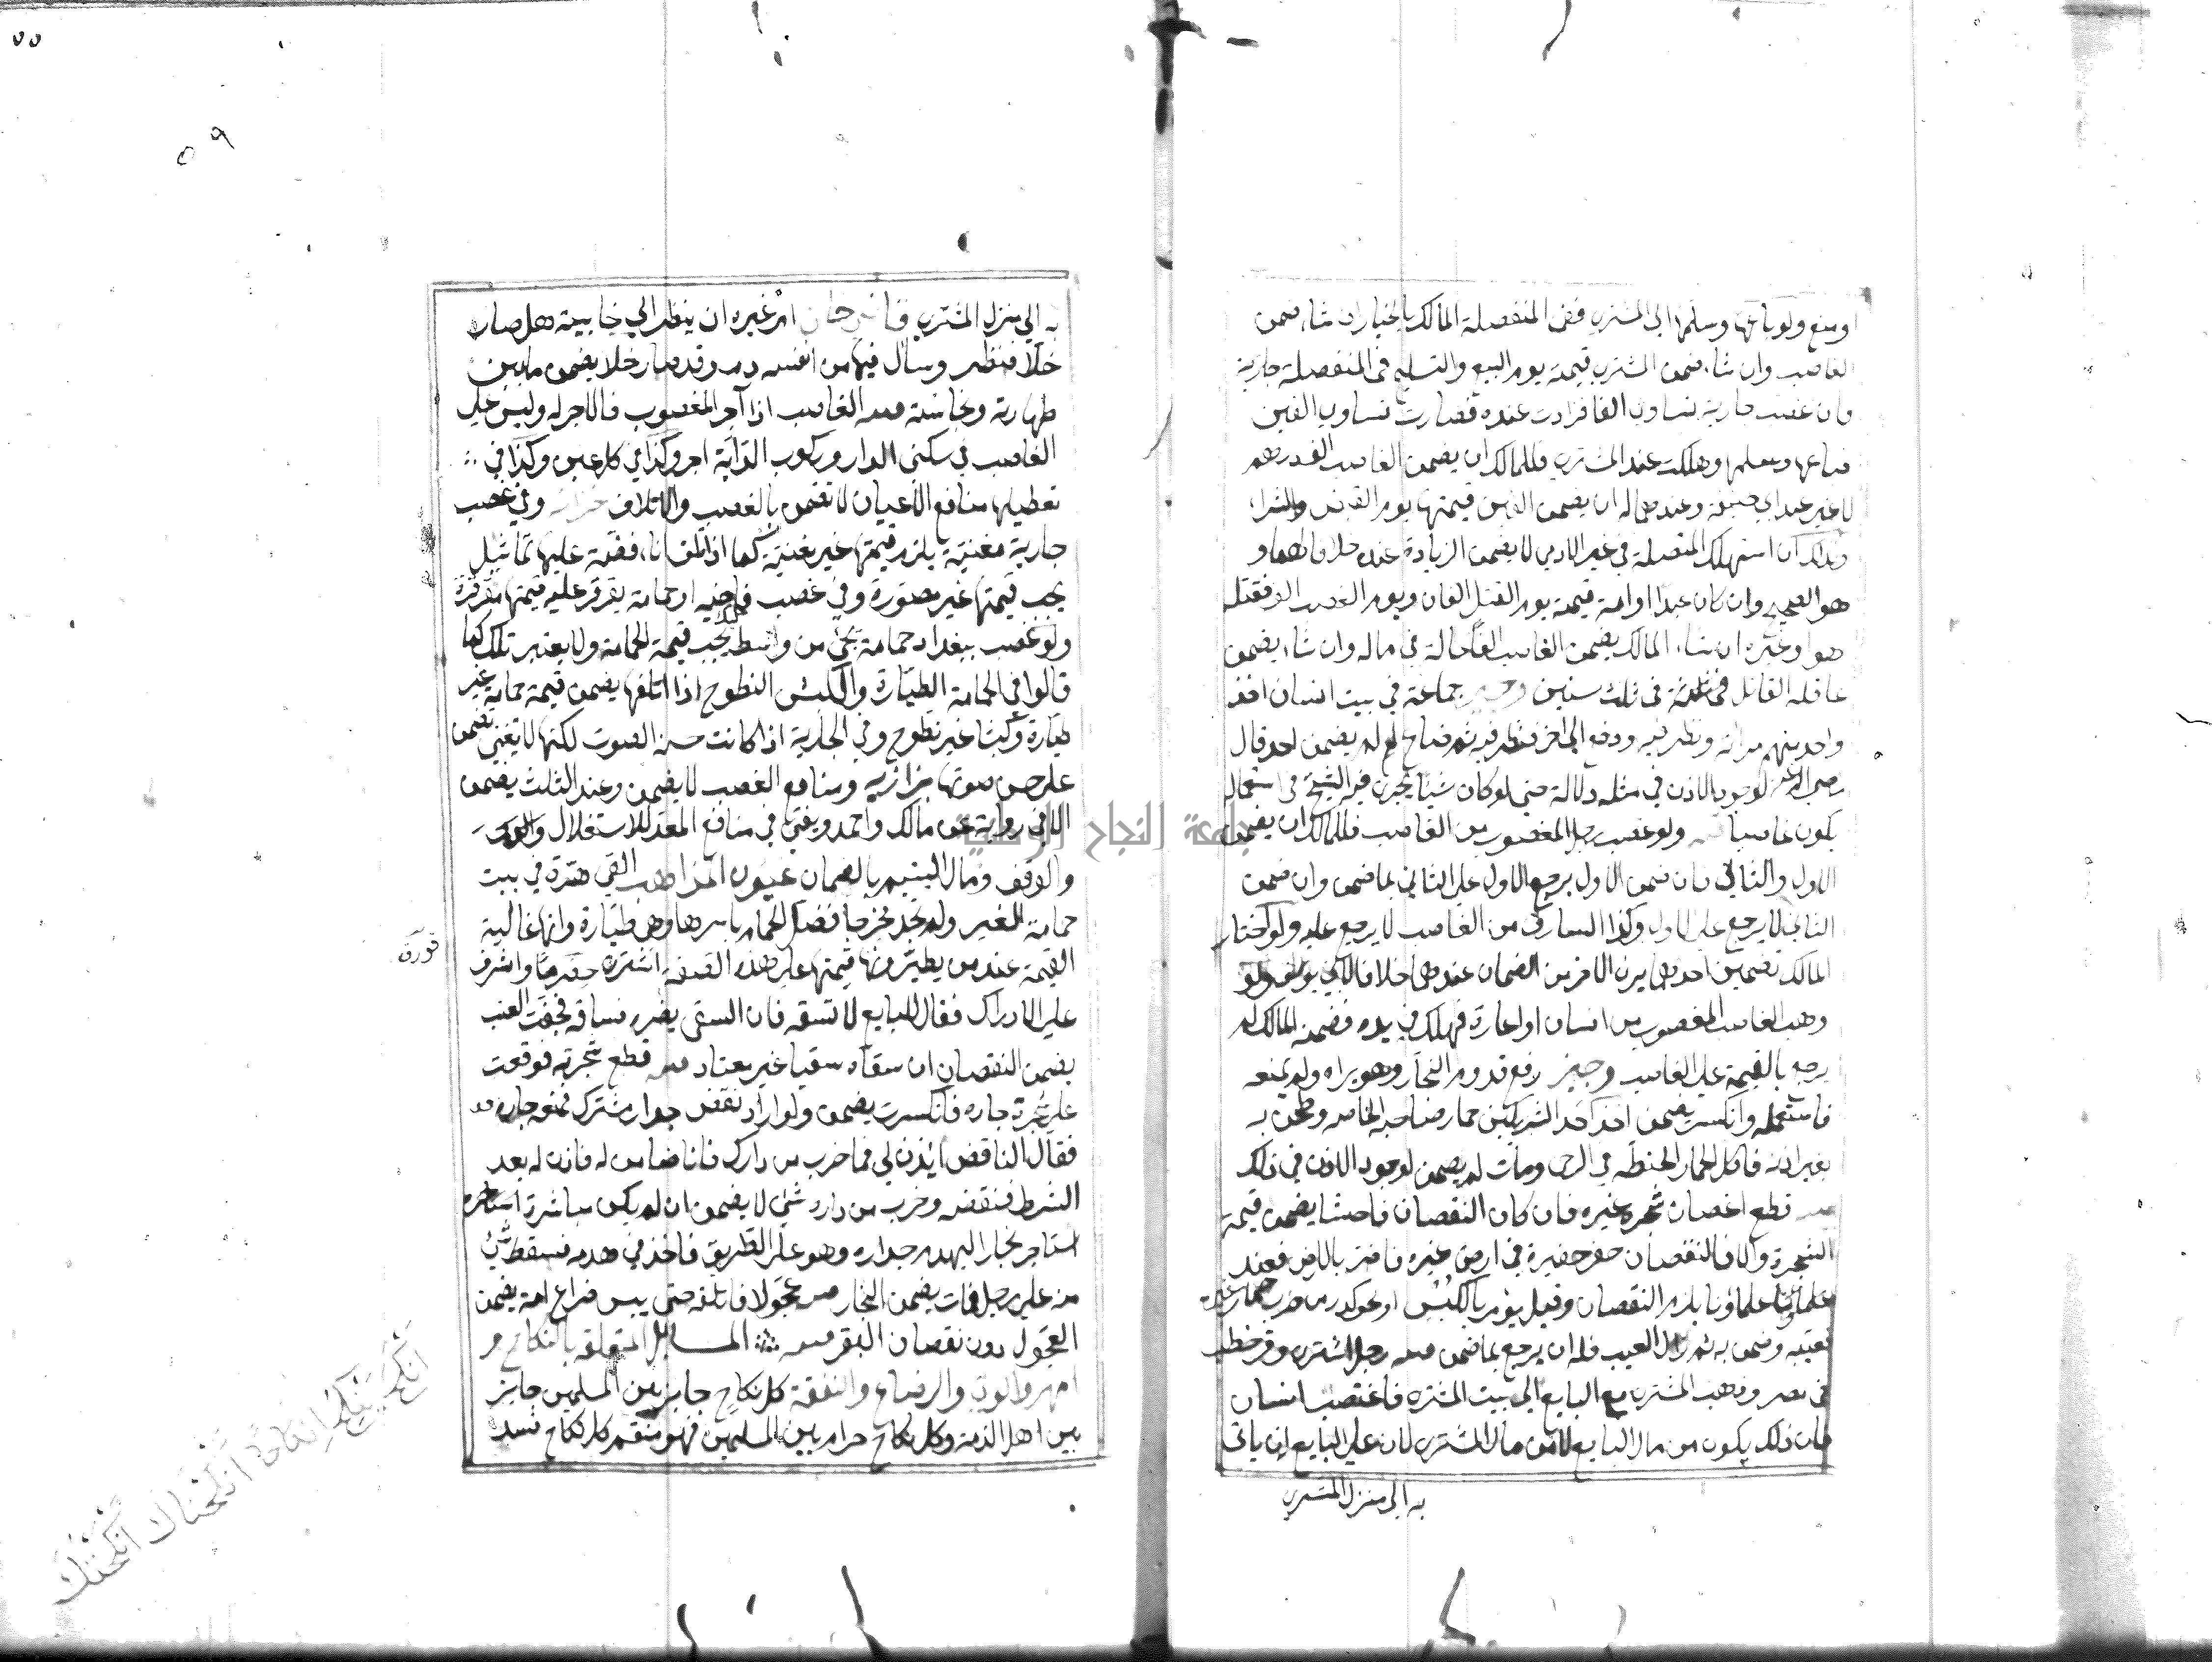 ومنع ولو باعها وسلمها الى المشتري ففى المنفصلة المالك بالخيار ان شاء ضمن
الغاصب وان شاء ضمن المشتري قيمته يوم البيع والتسليم فى المنفصلة جارية
فان غصب جارية تساوي الفا فزادت عنده فصارت تساوي الفين
فباعها وسلمها وهلكت عند المشتري فللمالك ان يضمن الغاصب الف درهم
لا غير عند ابي حنيفة وعندهما له ان يضمن الفين قيمتها يوم القبض والشراء
وكذلك ان استهلك المتصلة في غير الادمي لا يضمن الزيادة عنده خلافا لهما و
هو الصحيح وان كان عبدا او امة قيمته يوم القتل الفان ويوم الغصب الف فقتله
هو او غيره ان شاء المالك يضمن الغاصب الفا حالة في ماله وان شاء يضمن
عاقلة القاتل فى ثلاثة فى ثلث سنين وجيز جماعة في بيت انسان اخذ
واحد منهم مرآته ونظر فيه ودفع الى اخر فنظر فيه ثم ضاع لم يضمن احد قال
لوجود الاذن في مثله دلالة حتى لو كان شيئا يجري فيه الشح فى استعماله
يكون غاصبا ولو غصب رجل المغصوب من الغاصب فللمالك ان يضمن
الاول والثاني فان ضمن الاول يرجع الاول على الثاني بما ضمن وان ضمن
الثاني لا يرجع على الاول وكذا السارق من الغاصب لا يرجع عليه ولو اختار
المالك تضمين احدهما يبرئ الاخر من الضمان عندهما خلافا لابي يوسف ولو
وهب الغاصب المغصوب من انسان او اعارة فهلك في يده فضمنه المالك لم
يرجع بالقيمة على الغاصب وجيز رفع قدوم النجار وهو يراه ولم يمنعه
فاستعمله وانكسر يضمن اخذ احد الشريكين حمار صاحبه الخاص وطحن به
بغير اذنه فاكل الحمار الحنطة في الرحى ومات لم يضمن لوجود الاذن في ذلك
قطع اغصان شجرة غيره فان كان النقصان فاحشا يضمن قيمة
الشجرة والا فالنقصان حفر حفيرة في ارض غيره فاضر بالارض فعند
علمائنا يلزم النقصان وقيل يؤمر بالكبس او نحو كدر من ضرب حمار غيره
فعيبه وضمن به ثم زال العيب فله ان يرجع بما ضمن رجل اشترى وقر حطب
فى مصر وذهب المشتري مع البايع الى بيت المشتري فاغتصب انسان
فان ذلك يكون من مال البايع لا من مال المشتري لان على البايع ان ياتى
به الى منزل المشتري
٥٥
٥٩
به الى منزل المشتري امر غيره ان ينظر الى خابيته هل صار
خلا فنظر وسال فيها من انفه دم وقد صار خلا يضمن ما بين
طهارته ونجاسته الغاصب اذا آجر المغصوب فالاجر له وليس على
الغاصب في سكنى الدار وركوب الدابة اجر وكذا في كل عين وكذا في
تعطيلها منافع الاعيان لا تضمن بالغصب والاتلاف وفي غصب
جارية مغنية يلزم قيمتها غير مغنية كما اذا اتلف اناء فضة عليها تماثيل
يجب قيمتها غير مصورة وفي غصب فاختة او حمامة يقرقر عليه قيمتها مقرقرة
ولو غصب ببغداد حمامة تجئ من واسط يجب قيمة الحمامة ولا يعتبر تلك كما
قالوا فى الحمامة الطيارة والكبش النطوح اذا اتلفها يضمن قيمة حمامة غير
طيارة وكبشا غير نطوح وفي الجارية اذا كانت حسنة الصوت لكنها لا تغني تضمن
على حسن صوتها بزازية ومنافع الغصب لا يضمن وعند الثلث يضمن
الا في رواية عن مالك واحمد ويفتى في منافع المعد للاستغلال
والوقف ومال اليتيم بالضمان عيون المذاهب القى هرة في بيت
حمامة للغير ولم تجد مخرجا فقتل الحمام باسرها وهى طيارة وانها غالية
القيمة عند من يطيرونها قيمتها على هذه الصفة اشترى واشرف
على الادراك فقال البايع لا تسقه فان السقى يضره فسقاه فجفت العنب
يضمن النقصان ان سقاه سقيا غير معتاد قطع شجرته فوقعت
على شجرة جاره فانكسرت يضمن ولو اراد نقض جدار مشترك فمنعه جاره
فقال الناقض ايذن لي فما خرب من دارك فانا ضامن له فاذن له بعد
الشرط فنقضه وخرب من داره شئ لا يضمن ان لم يكن مباشرة
استاجر نجارا ليهدم جداره وهو على الطريق فاخذ في هدمه فسقط شئ
منه على رجل فمات يضمن النجار عجولا فاتلفه حتى يبس ضراع امه يضمن
العجول دون نقصان البقر المسايل المتعلقة بالنكاح
والرضاع والنفقة كل نكاح جايز بين المسلمين جايز
بين اهل الذمة وكل نكاح حرام بين المسلمين فهو كل نكاح فسد
جامعة النجاح الوطنية